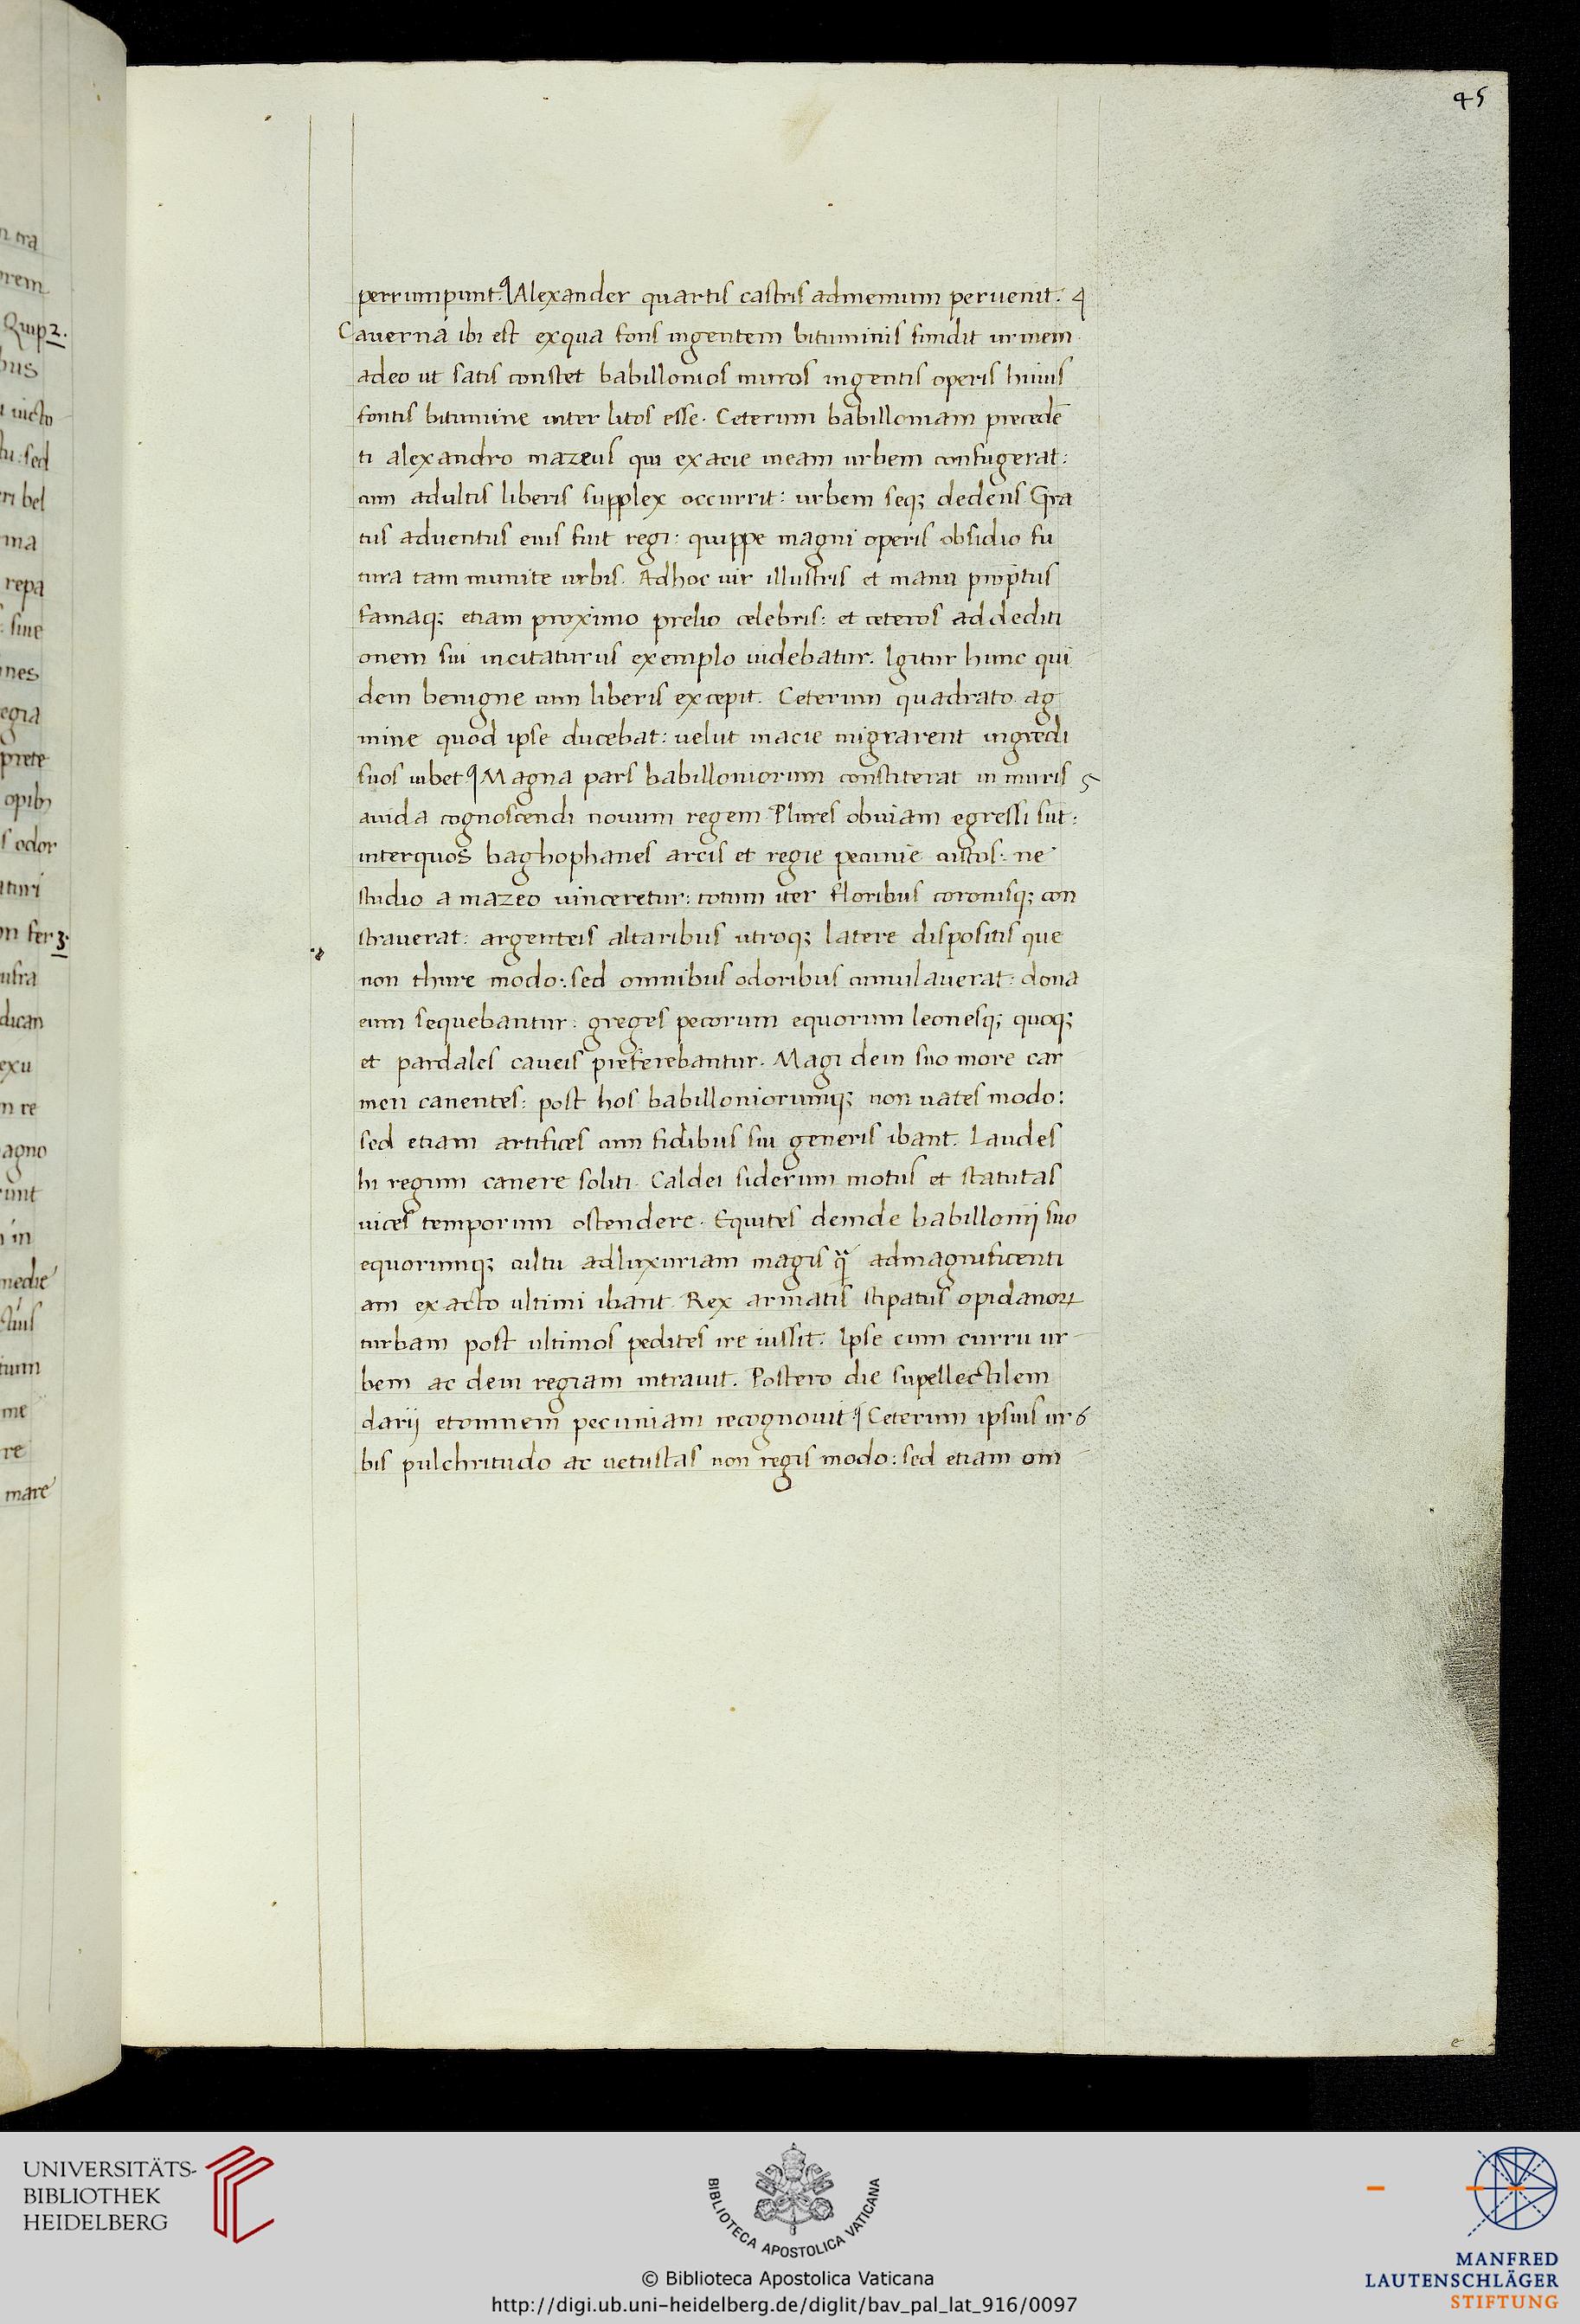 45
perrumpunt. Alexander quartis castris admemum peruenit. 4
Cauerna ibi est exqua fons ingentem bituminis fundit urmem
adeo ut satis constet babillonios muros ingentis operis huius
fontis bitumine inter litos esse. Ceterum babilloniam precedē
ti alexandro mazeus qui exacie ineam urbem confugerat:
cum adultis liberis supplex occurrit: urbem seq; dedens Gra
tus aduentus eius fuit regi: quippe magni operis obsidio fu
tura tam munite urbis. Adhoc uir illustris et manu promptus
famaq; etiam proximo prelio celebris: et ceteros addediti
onem sui incitaturus exemplo uidebatur. Igitur hunc qui
dem benigne cum liberis excepit. Ceterum quadrato ag
mine quod ipse ducebat: uelut inacie migrarent ingredi
suos iubet Magna pars babilloniorum constiterat in muris 5
auida cognoscendi nouum regem Plures obuiam egressi sūt:
interquos baghophanes arcis et regie pecunie custos: ne
studio a mazeo uinceretur: totum iter floribus coronisq; con
strauerat: argenteis altaribus utroq; latere dispositis que
non thure modo: sed omnibus odoribus cumulauerat: dona
eum sequebantur: greges pecorum equorum leonesq; quoq;
et pardales caueis preferebantur. Magi dein suo more car
men canentes: post hos babilloniorumq; non uates modo:
sed etiam artifices cum fidibus sui generis ibant. Laudes
hi regum canere soliti. Caldei siderum motus et statutas
uices temporum ostendere. Equites deinde babillonij suo
equorumq; cultu adluxuriam magis q̃ admagnificenti
am exacto ultimi ibant. Rex armatis stipatus opidanoꝝ
turbam post ultimos pedites ire iussit. Ipse cum curru ur
bem ac dein regiam intrauit. Postero die supellectilem
darij etomnem pecuniam recognouit Ceterum ipsius ur 6
bis pulchritudo ac uetustas non regis modo: sed etiam om
e
UNIVERSITÄTS-
BIBLIOTHEK
HEIDELBERG
BIBLIOTECA APOSTOLICA VATICANA
© Biblioteca Apostolica Vaticana
http://digi.ub.uni-heidelberg.de/diglit/bav_pal_lat_916/0097
MANFRED
LAUTENSCHLÄGER
STIFTUNG